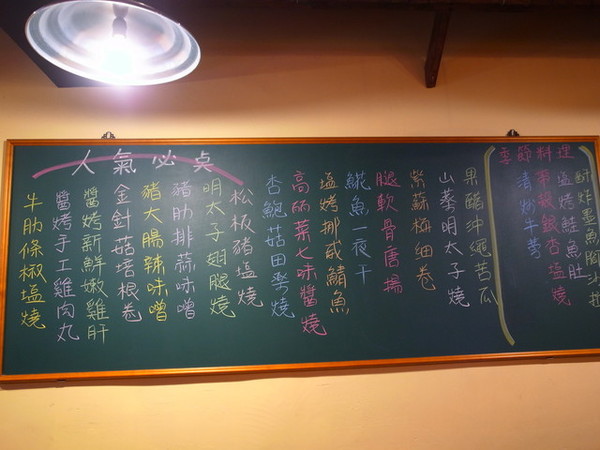 季節料理
炸墨魚
塩烤鮭魚肚
銀杏塩燒
清炒牛蒡
果醋沖繩苦瓜
山藥明太子燒
紫蘇梅細卷
腿軟骨唐揚
魚一夜干
塩烤挪威鯖魚
高丽菜七味醬燒
杏鮑菇田樂燒
人氣必奌
松板豬塩燒
明太子翅腿燒
豬肋排蒜味噌
豬大腸辣味噌
金針菇培根卷
醬烤新鮮嫩雞肝
醬烤手工雞肉丸
牛肋條椒塩燒